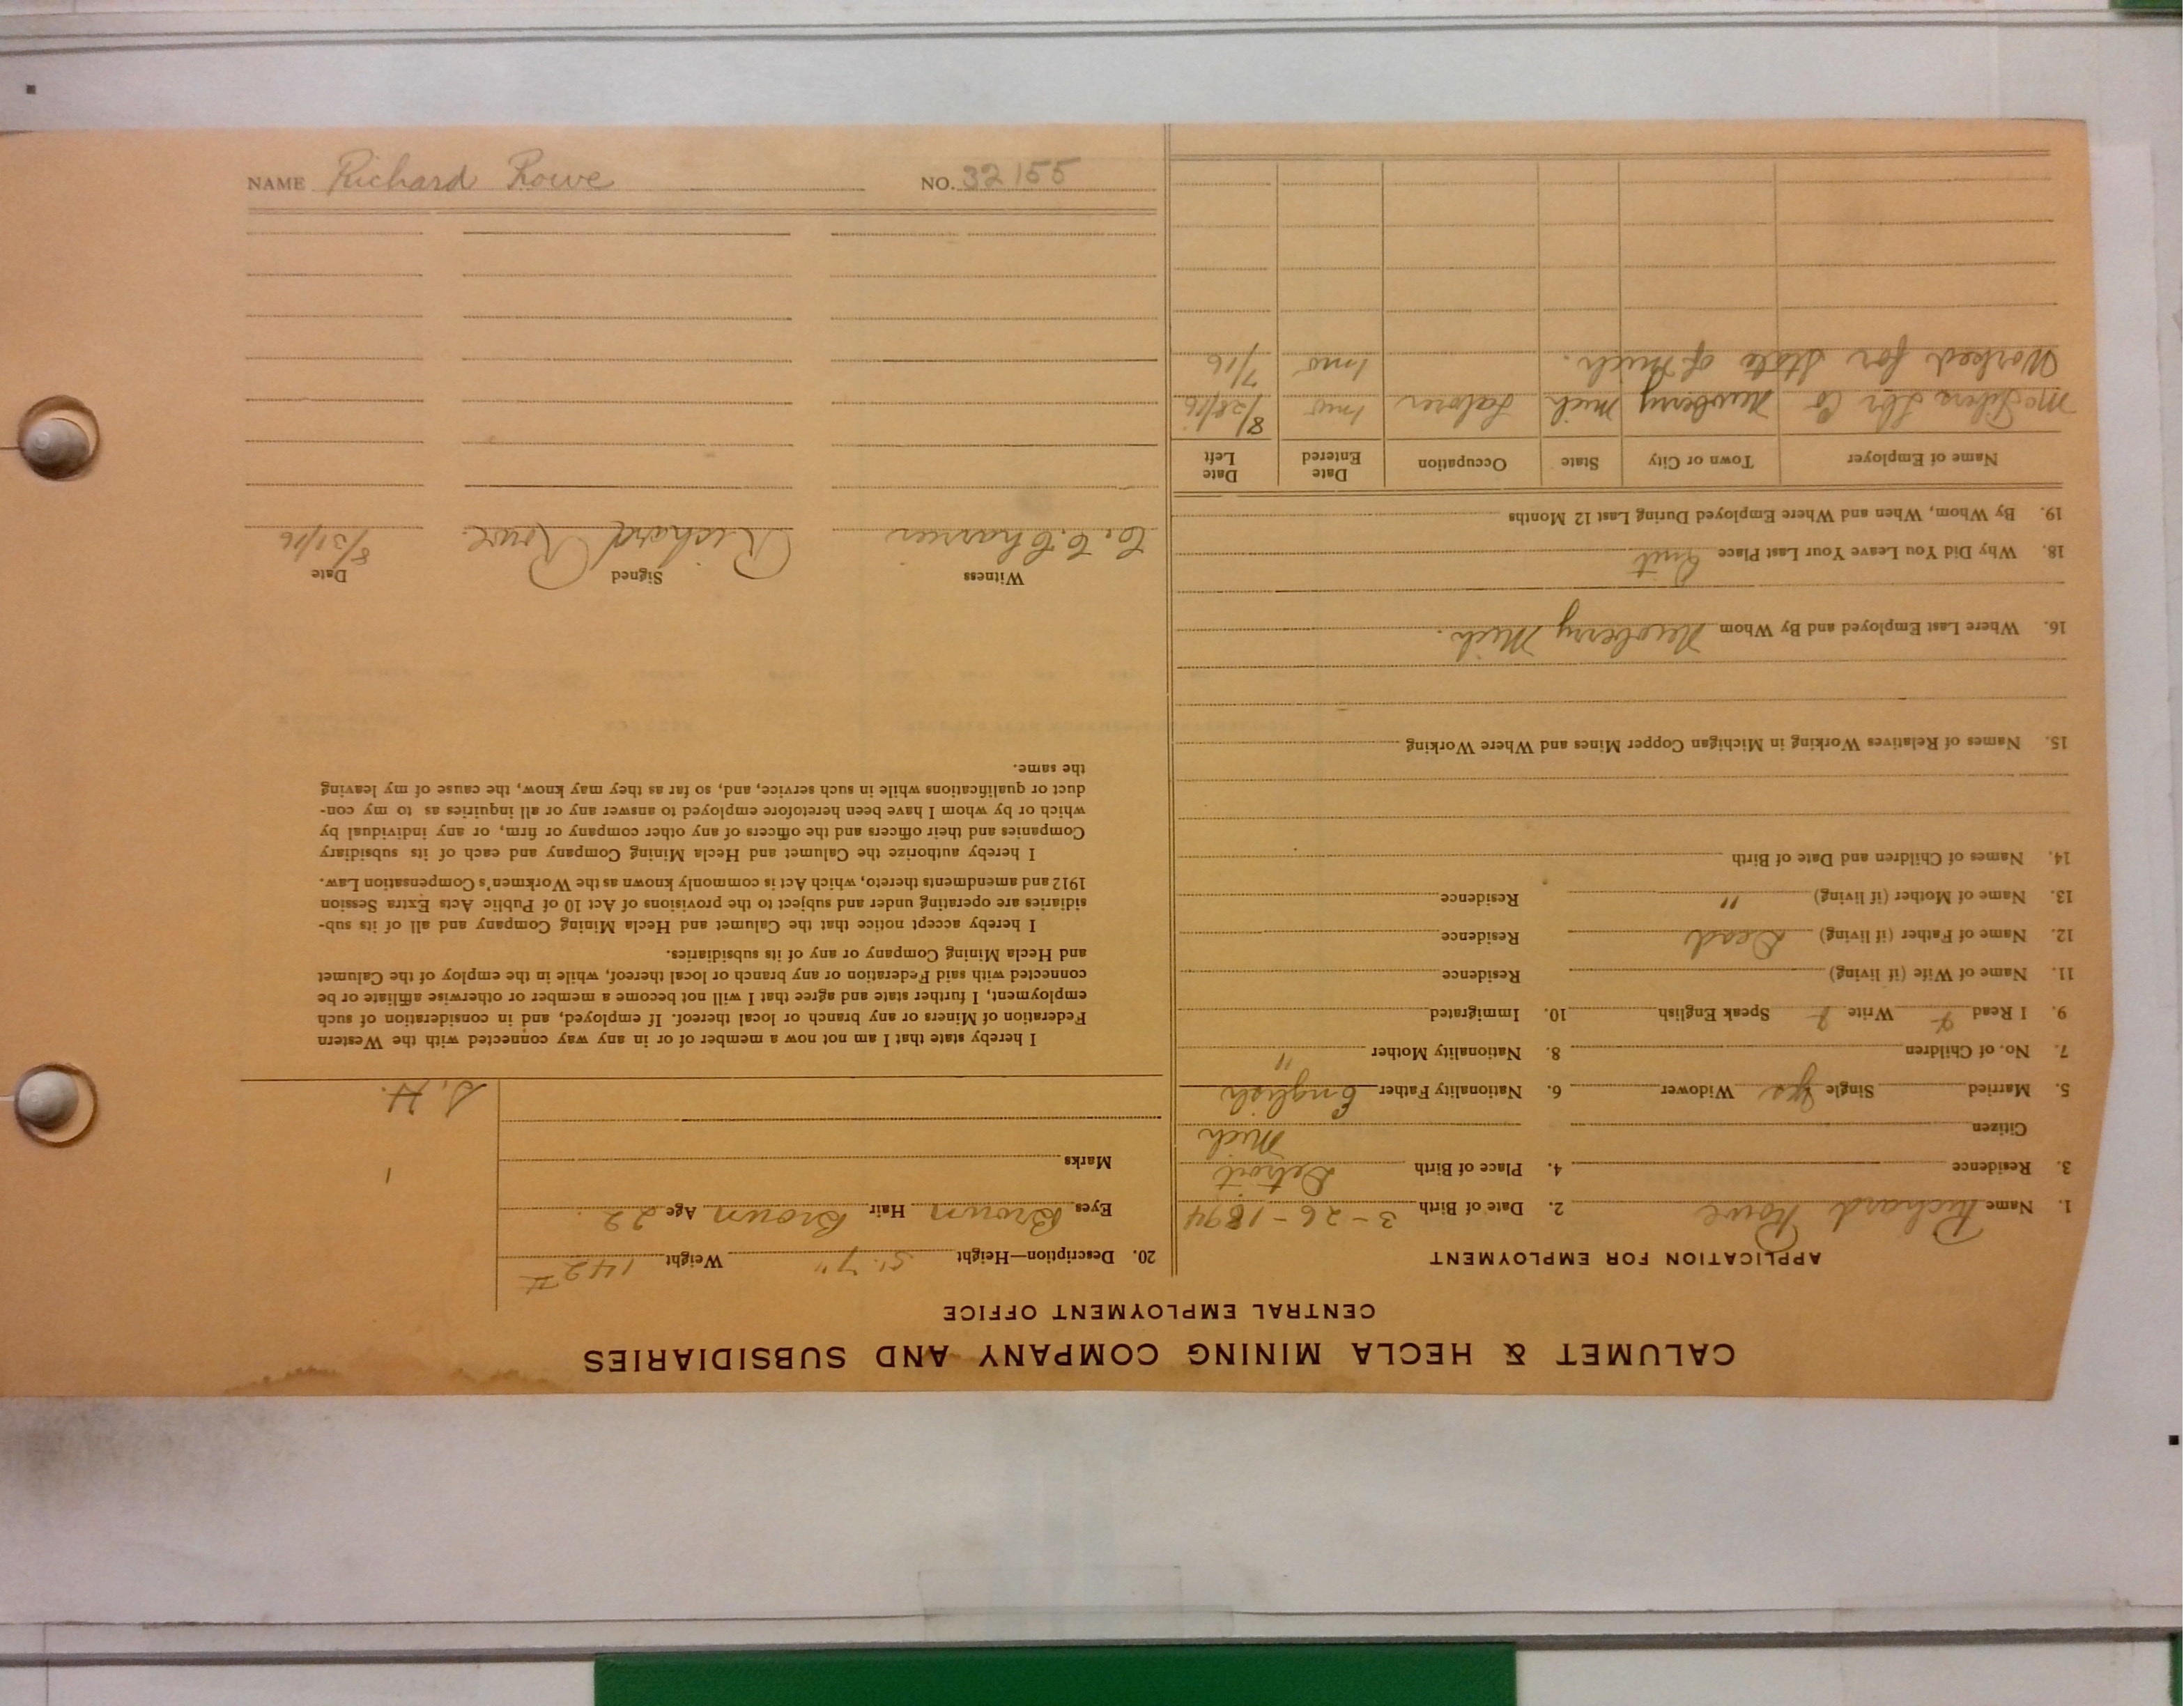 CALUMET & HECLA MINING COMPANY AND SUBSIDIARIES
CENTRAL EMPLOYMENT OFFICE
APPLICATION FOR EMPLOYMENT
1. Name Richard Rowe 2. Date of Birth 3-26-1894
3. Residence 4. Place of Birth Detroit
Citizen Mich
5. Married Single yes Widower 6. Nationality Father English
7. No. of Children 8. Nationality Mother "
9. I Read Write Speak English 10. Immigrated
11. Name of Wife (if living) Residence
12. Name of Father (if living) Dead Residence
13. Name of Mother (if living) " Residence
14. Names of Children and Date of Birth
15. Names of Relatives Working in Michigan Copper Mines and Where Working
16. Where Last Employed and By Whom Newberry Mich.
18. Why Did You Leave Your Last Place Quit
19. By Whom, When and Where Employed During Last 12 Months
Name of Employer Town or City State Occupation Date Entered Date Left
Lbr Co Newberry Mich Laborer 1 mo 8/28/16
Worked for State of Mich. 1 mo 7/16
20. Description—Height 5' 7" Weight 142 #
Eyes Brown Hair Brown Age 22
Marks
1
S. H.
I hereby state that I am not now a member of or in any way connected with the Western
Federation of Miners or any branch or local thereof. If employed, and in consideration of such
employment, I further state and agree that I will not become a member or otherwise affiliate or be
connected with said Federation or any branch or local thereof, while in the employ of the Calumet
and Hecla Mining Company or any of its subsidiaries.
I hereby accept notice that the Calumet and Hecla Mining Company and all of its sub-
sidiaries are operating under and subject to the provisions of Act 10 of Public Acts Extra Session
1912 and amendments thereto, which Act is commonly known as the Workmen's Compensation Law.
I hereby authorize the Calumet and Hecla Mining Company and each of its subsidiary
Companies and their officers and the officers of any other company or firm, or any individual by
which or by whom I have been heretofore employed to answer any or all inquiries as to my con-
duct or qualifications while in such service, and, so far as they may know, the cause of my leaving
the same.
Witness Signed Date
Richard Rowe. 8/31/16
NAME Richard Rowe NO. 32155